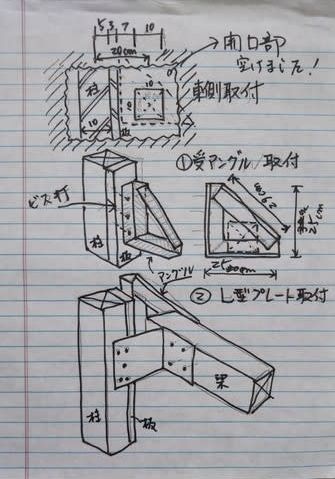 5 3 7 10
20cm
開口部
空けました!
車側取付
柱
板
10
10
①受アングル取付
ビス打
柱
板
アングル
25
②L型プレート取付
梁
柱
板